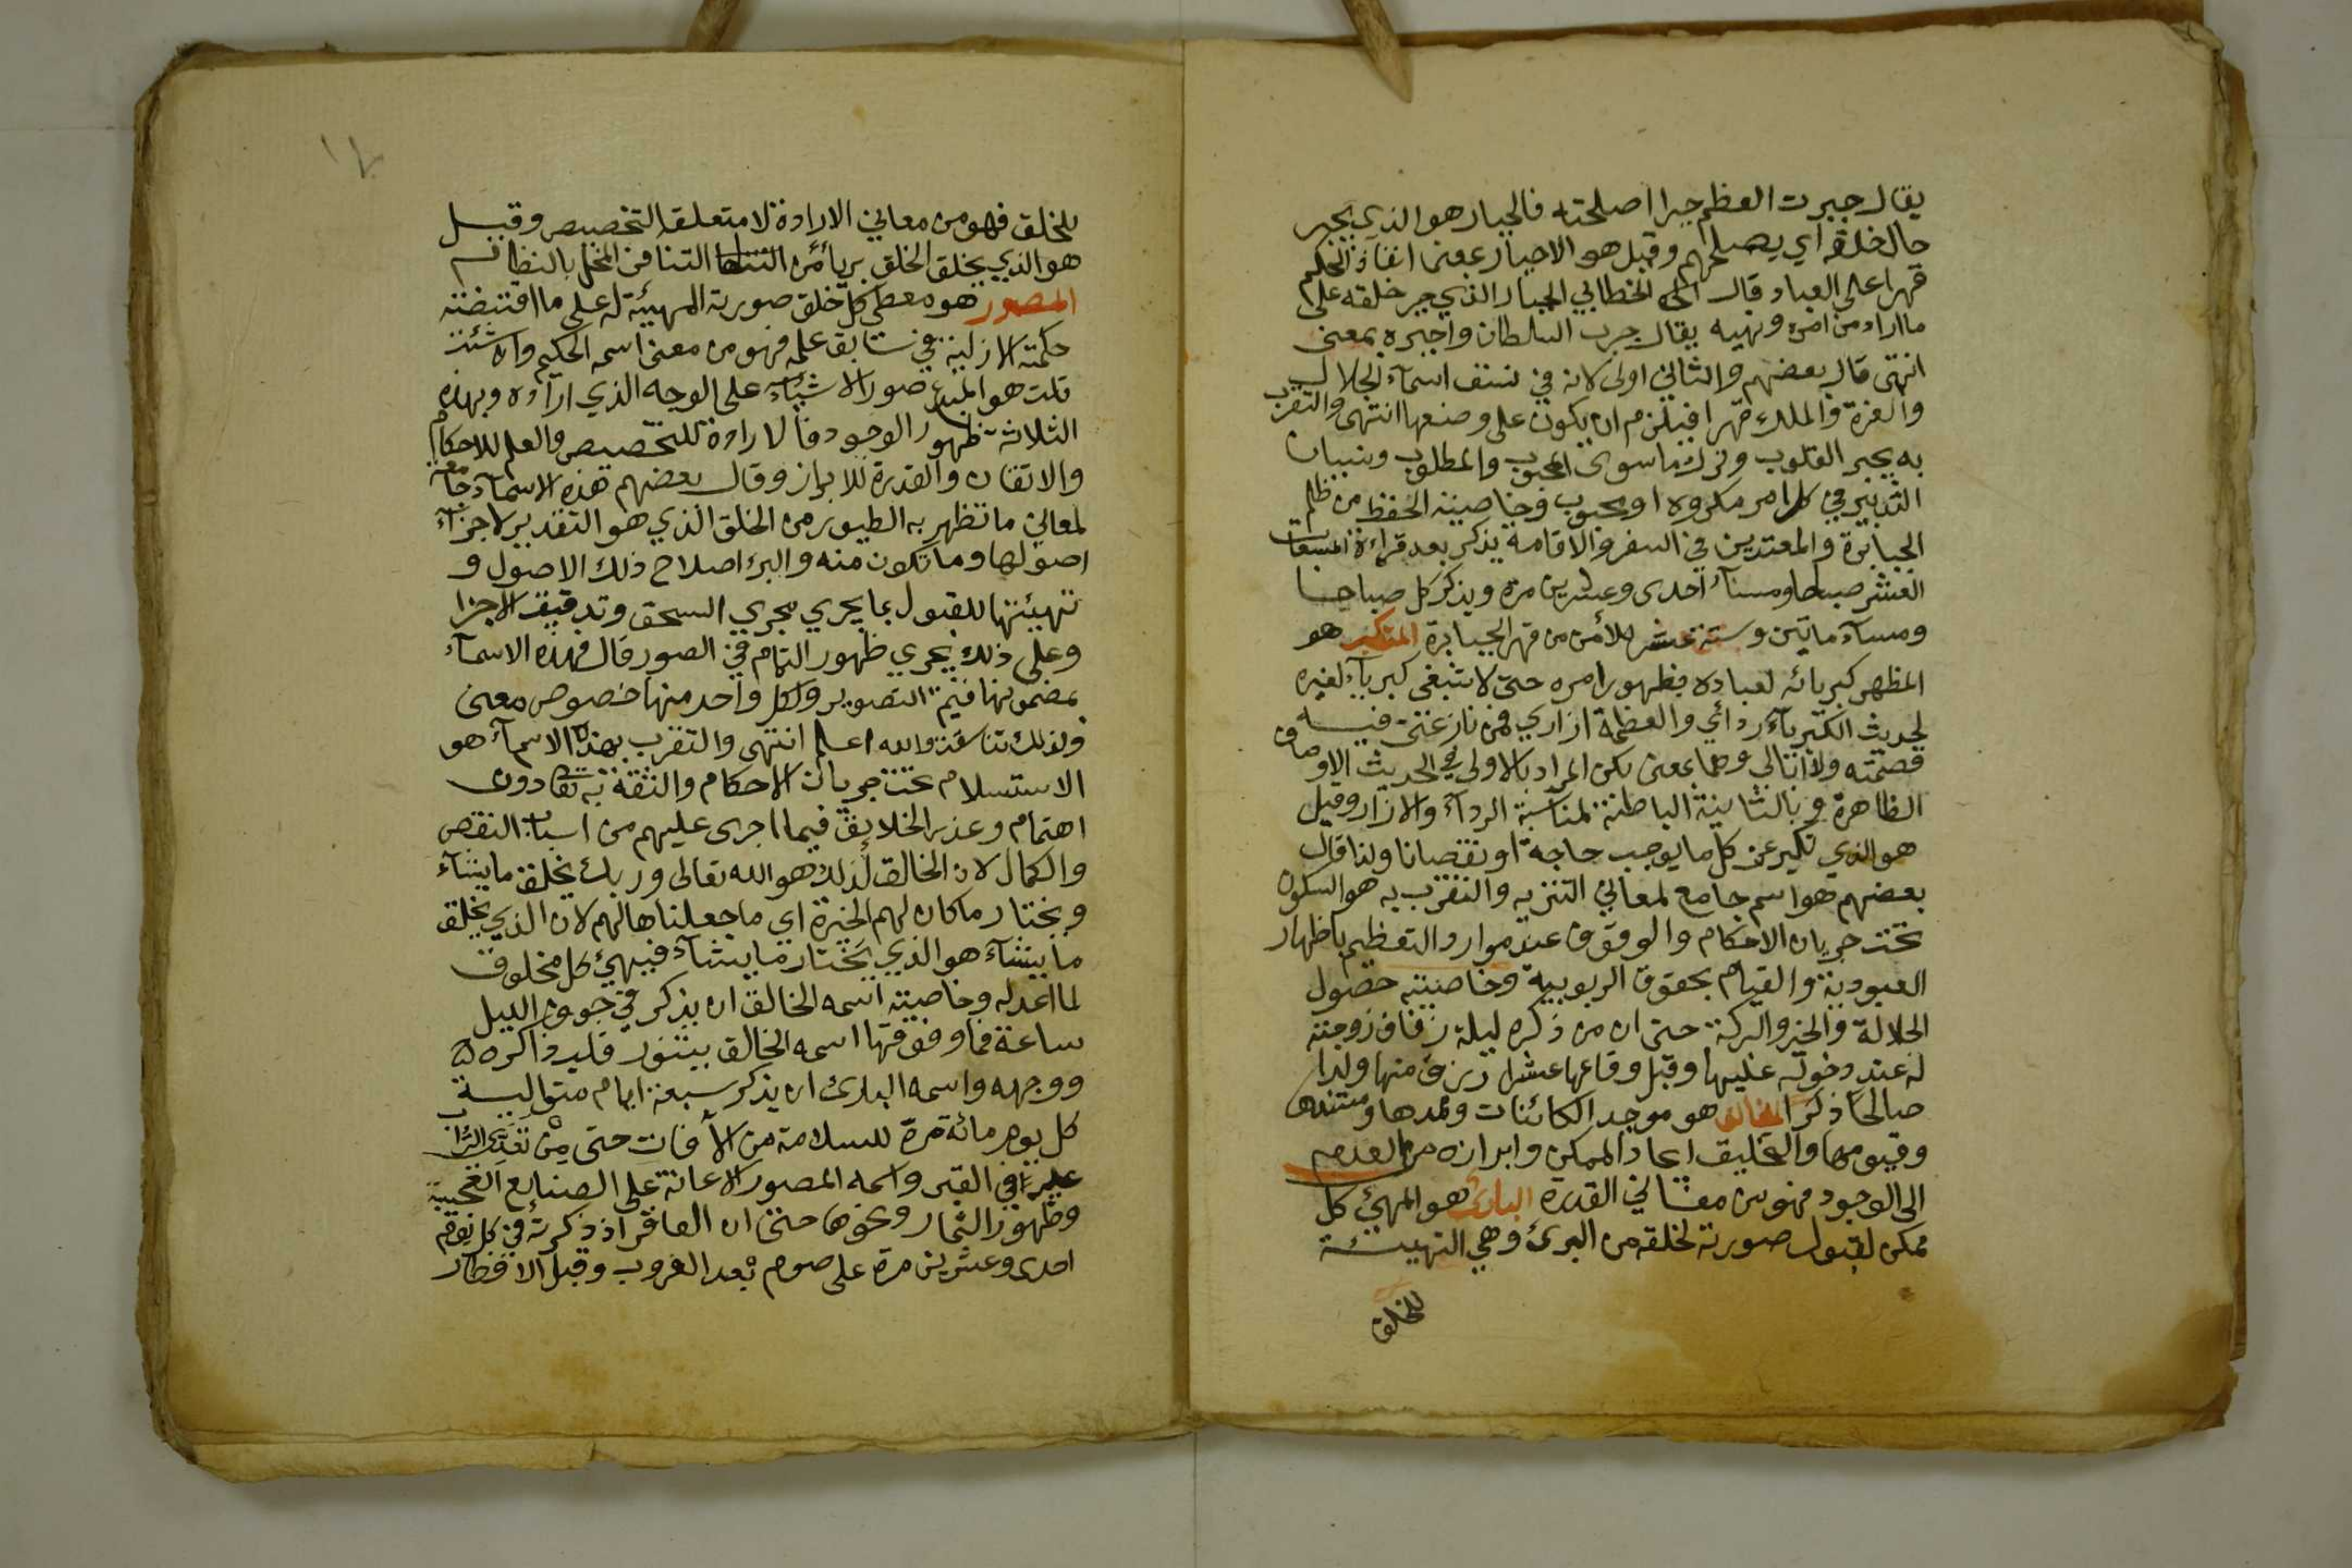 يقال جبرت العظم جبرا اصلحته فالجبار هو الذي يجبر
حال خلقه اي يصلحهم وقيل هو الاجبار بمعنى انفاذ الحكم
قهرا على العباد قال الخطابي الجبار الذي جبر خلقه على
ما اراد من امره ونهيه يقال جبره السلطان واجبره بمعنى
انتهى قال بعضهم والثاني اولى لانه في نسق اسماء الجلال
والعزة والملك قهرا فيلزم ان يكون على وضعها انتهى والتقرب
به يجبر القلوب وترك ما سوى المحبوب والمطلوب ونسيان
التدبير في كل امر مكروه او محبوب وخاصيته الحفظ من ظلم
الجبابرة والمعتدين في السفر والاقامة يذكر بعد قراءة المسبعات
العشر صباحا ومساء احدى وعشرين مرة ويذكر كل صباحا
ومساء ماتين وستة عشر للأمن من قهر الجبابرة المتكبر هو
المظهر كبريائه لعباده بظهور امره حتى لا تبقى كبرياء لغيره
لحديث الكبرياء ردائي والعظمة ازاري فمن نازعني فيه
قصمته ولا ابالي وهما بمعنى لكن المراد بالاولى في الحديث الاوصاف
الظاهرة وبالثانية الباطنة لمناسبة الرداء والازار وقيل
هو الذي تكبر عن كل ما يوجب حاجة او نقصانا ولذا قال
بعضهم هو اسم جامع لمعاني التنزيه والتقرب به هو السكون
تحت جريان الاحكام والوقوف عند موارد التعظيم باظهار
العبودية والقيام بحقوق الربوبية وخاصيته حصول
الجلالة والخير والبركة حتى ان من ذكره ليلة زفاف زوجته
له عند دخوله عليها وقبل وقاعها عشرا رزق منها ولدا
صالحا ذكرا الخالق هو موجد الكائنات وممدها
وقيومها والتخليق ايجاد الممكن وابرازه من العدم
الى الوجود فهو من معاني القدرة البارئ هو المهيئ كل
ممكن لقبول صورته لخلقه من البرئ وهي التهيئة
للخلق
١٧
للخلق فهو من معاني الارادة لا متعلقه التخصيص وقيل
هو الذي يخلق الخلق بريا من التنافر المخل بالنظام
المصور هو معطي كل خلق صورته المهيئة له على ما اقتضته
حكمته الازلية في سابق علمه فهو من معنى اسمه الحكيم وان شئت
قلت هو المبدع صور الاشياء على الوجه الذي اراده وبهذه
الثلاثة ظهور الوجود فالارادة للتخصيص والعلم للاحكام
والاتقان والقدرة للابراز وقال بعضهم هذه الاسماء جامعة
لمعاني ما تظهر به الطيور من الخلق الذي هو التقدير لاجزاء
اصولها وما تكون منه والبرء اصلاح ذلك الاصول و
تهيئتها للقبول بما يجري مجرى السحق وتدقيق الاجزا
وعلى ذلك يجري ظهور التمام في الصور قال فهذه الاسماء
بمضمونها قيم التصوير ولكل واحد منها خصوص معنى
ولذلك تناسقت والله اعلم انتهى والتقرب بهذه الاسماء هو
الاستسلام تحت جريان الاحكام والثقة به تعا دون
اهتمام وعذر الخلايق فيما اجرى عليهم من اسباب النقص
والكمال لان الخالق لذلك هو الله تعالى وربك يخلق ما يشاء
ويختار ما كان لهم الخيرة اي ما جعلناها لهم لان الذي يخلق
ما يشاء هو الذي يختار ما يشاء فيهيئ كل مخلوق
لما اعد له وخاصيته اسمه الخالق ان يذكر في جوف الليل
ساعة فما فوقها اسمه الخالق يتنور قلب ذاكره
ووجهه واسمه البارئ ان يذكر سبعة ايام متوالية
كل يوم مائة مرة للسلامة من الآفات حتى من تعدي التراب
عليه في القبر واسمه المصور الاعانة على الصنايع العجيبة
وظهور الثمار ونحوها حتى ان العاقر اذ ذكرته في كل يوم
احدى وعشرين مرة على صوم بعد الغروب وقبل الافطار